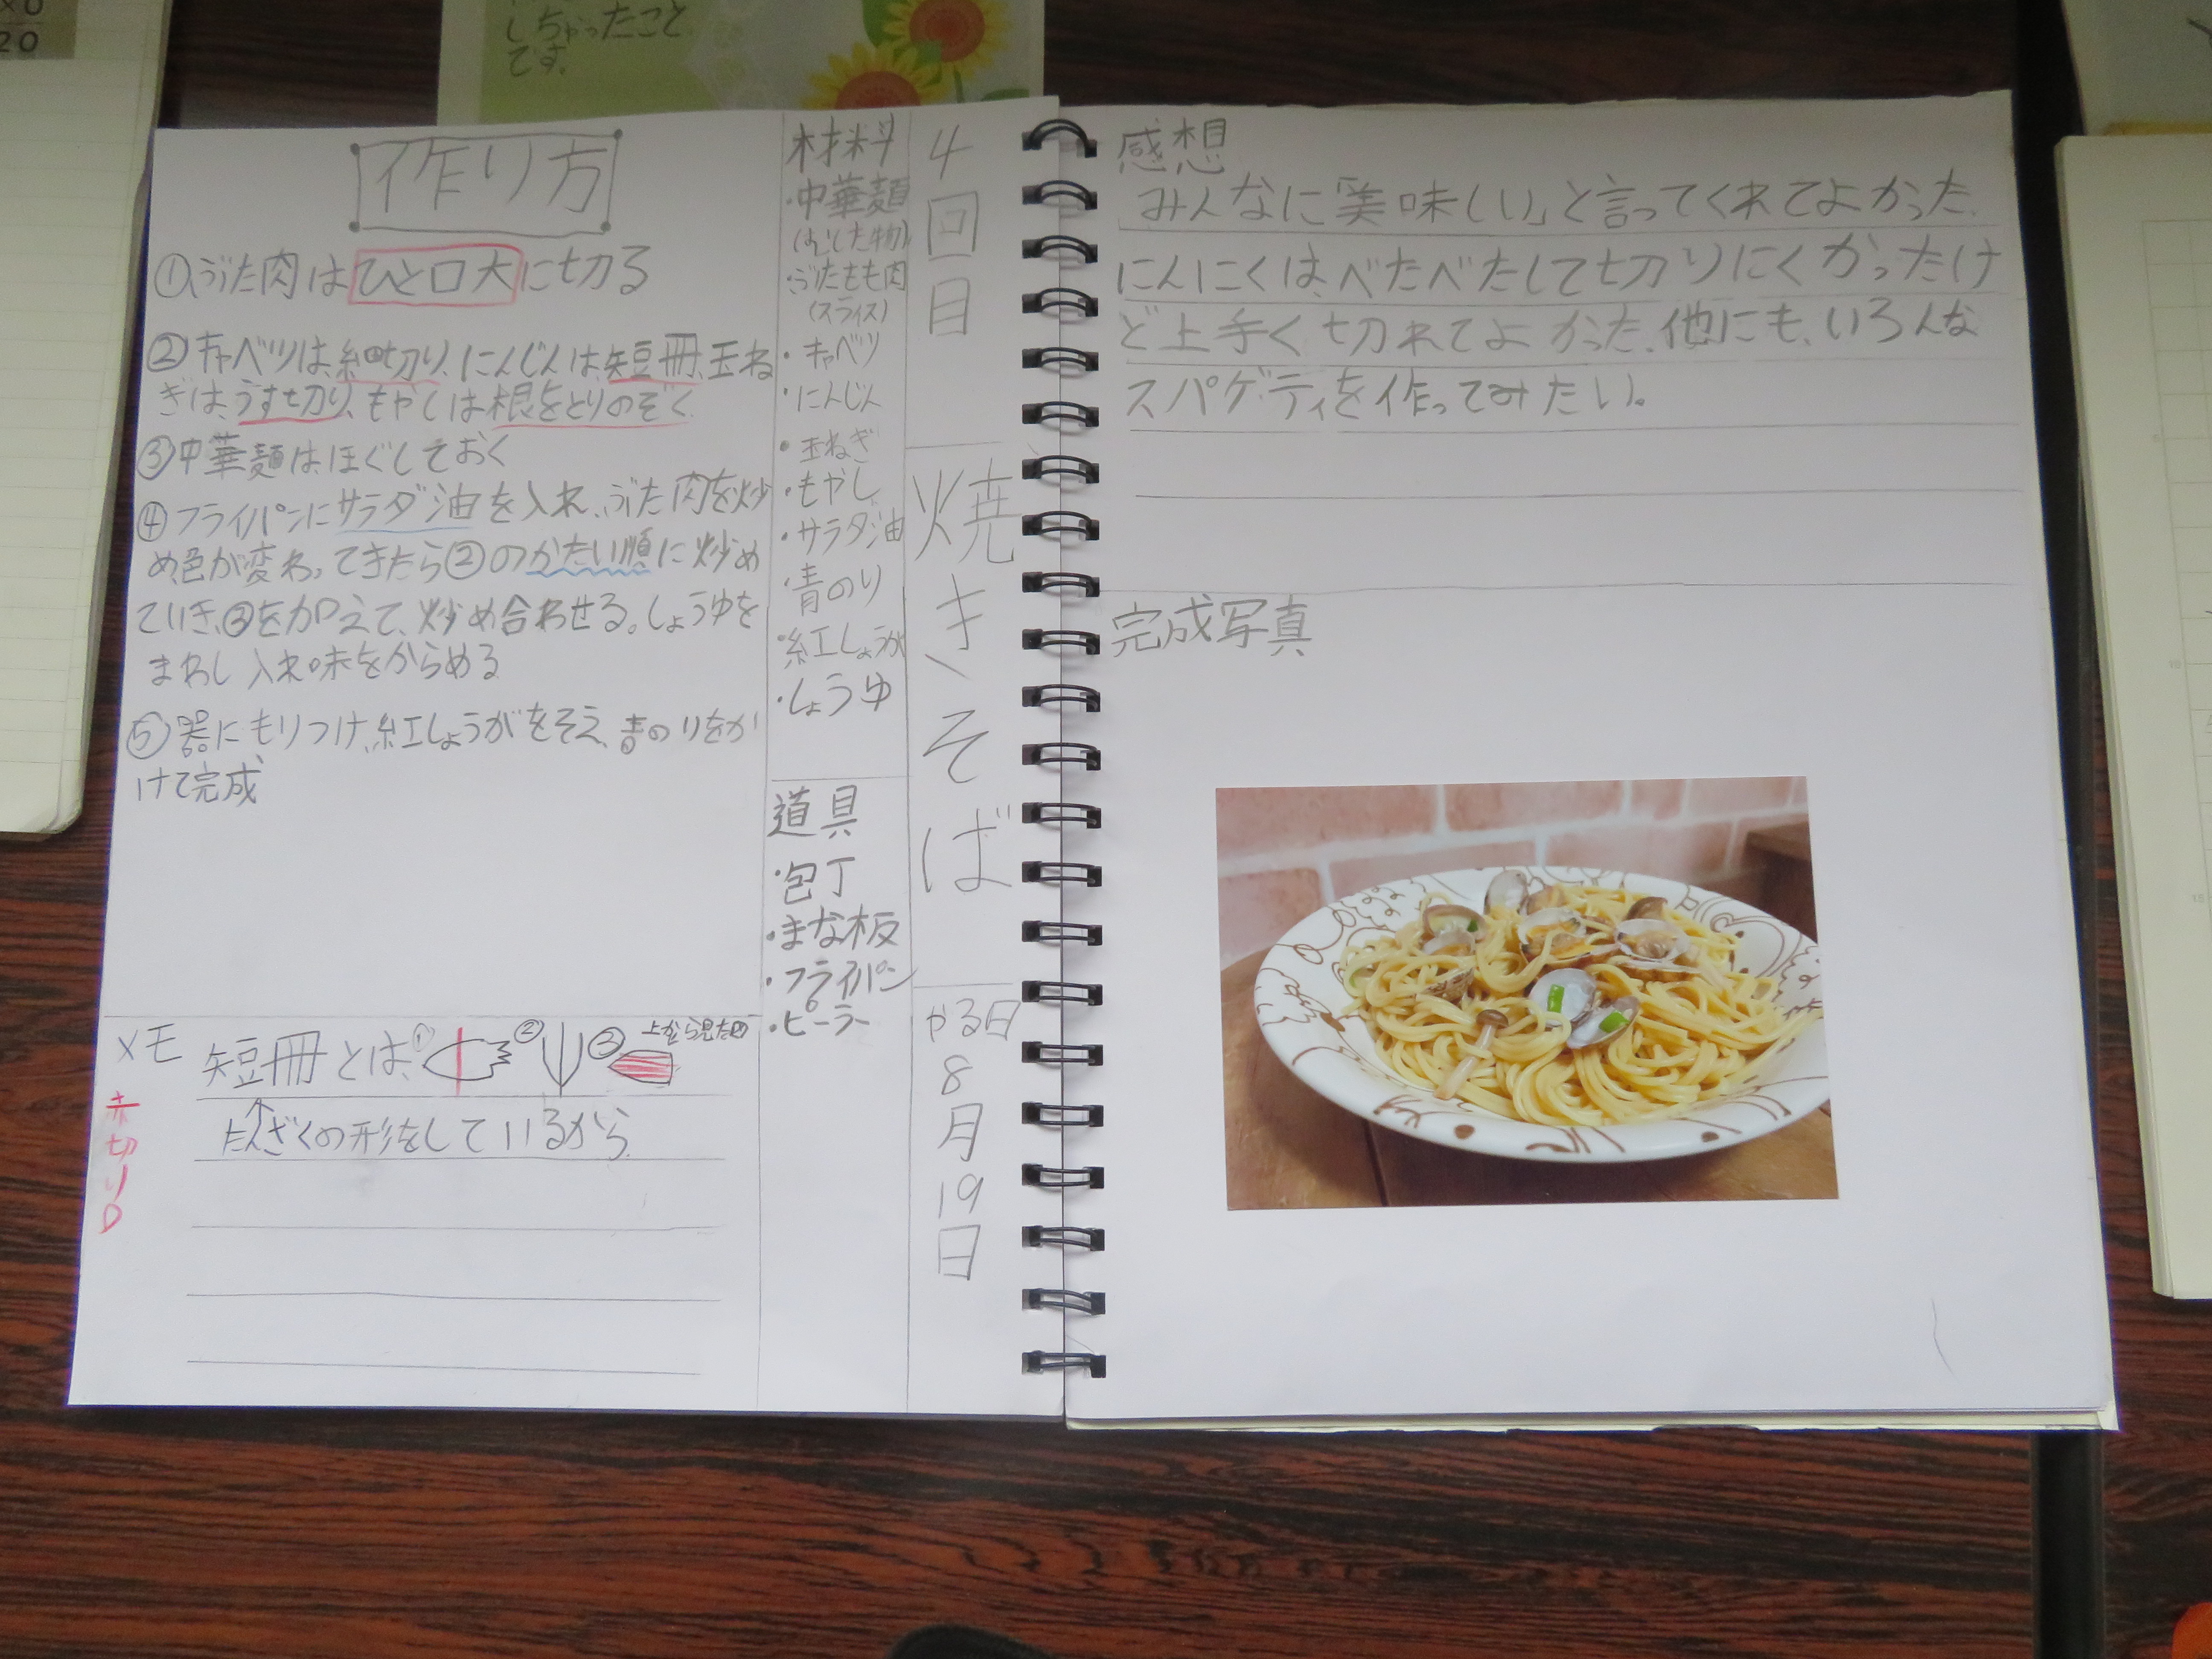 しちゃったこと
です。
20
4回目
焼きそば
やる日
8月19日
材料
・中華麺
(むした物)
・ぶたもも肉
(スライス)
・キャベツ
・にんじん
・玉ねぎ
・もやし
・サラダ油
・青のり
・紅しょうが
・しょうゆ
道具
・包丁
・まな板
・フライパン
・ピーラー
作り方
①ぶた肉はひと口大に切る
②キャベツは、細切り、にんじんは、短冊、玉ね
ぎは、うす切り、もやしは根をとりのぞく
③中華麺はほぐしておく
④フライパンにサラダ油を入れ、ぶた肉を炒
め、色が変わってきたら②のかたい順に炒め
ていき、③を加えて、炒め合わせる。しょうゆを
まわし入れ味をからめる
⑤器にもりつけ、紅しょうがをそえ、青のりをか
けて完成
メモ
短冊とは、① ② ③ 上から見た図
たんざくの形をしているから
赤切り
感想
みんなに「美味しい」と言ってくれてよかった。
にんにくは、べたべたして切りにくかったけ
ど上手く切れてよかった。他にも、いろんな
スパゲティを作ってみたい。
完成写真